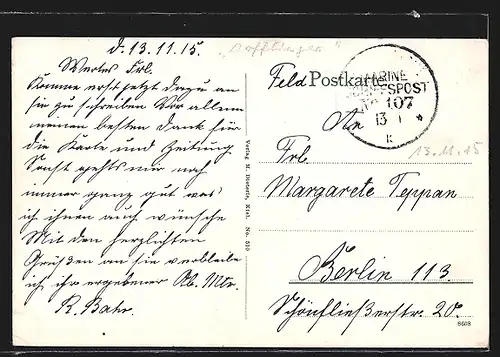 d. 13.11.15.
Wertes Frl.
Komme erst jetzt dazu an
sie zu schreiben Vor allem
meinen besten Dank für
die Karte und Zeitung.
Sonst gehts mir noch
immer ganz gut was
ich ihnen auch wünsche
Mit den herzlichten
Grüßen an sie verbleibe
ich ihr ergebener Ob. Mtr.
R. Bahr.
Verlag M. Dieterle, Kiel. No. 510
Feld Postkarte
MARINE
SCHIFFSPOST
No 107
13
K
13.11.15
An
Frl.
Margarete Teppan
Berlin 113.
Schönfließerstr. 20.
8608